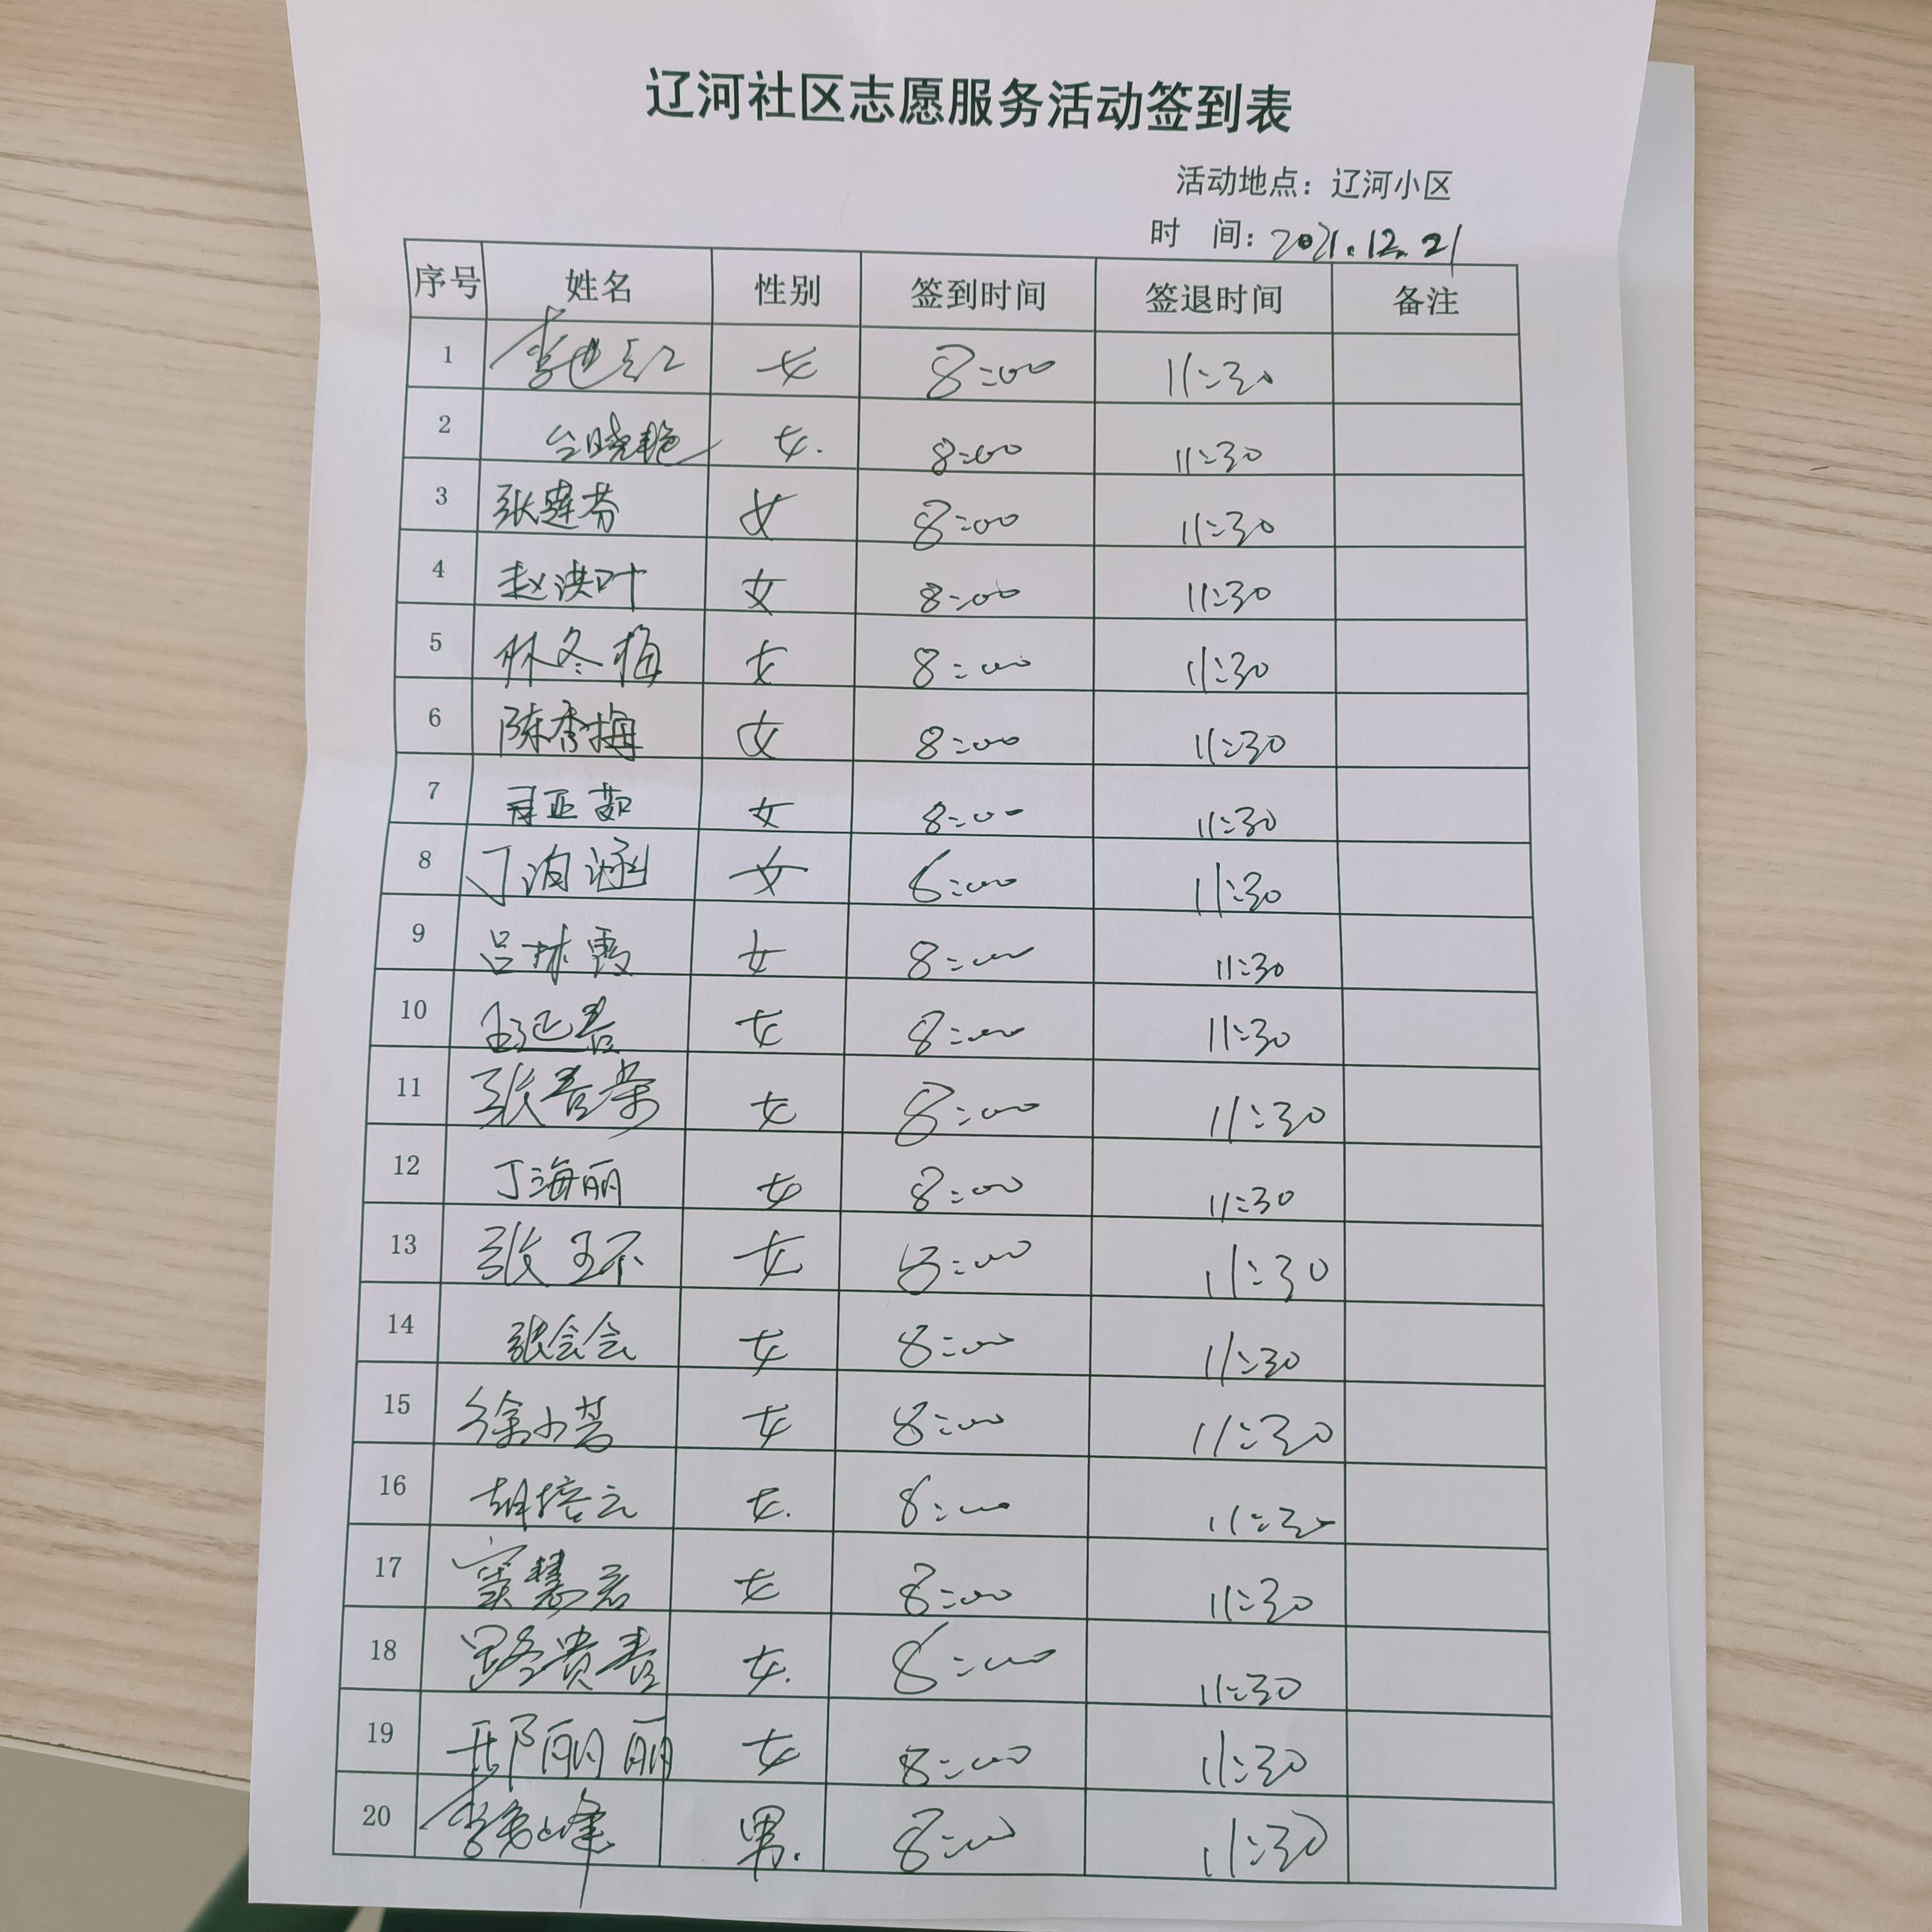 辽河社区志愿服务活动签到表
活动地点：辽河小区
时 间：2021.12.21
序号 姓名 性别 签到时间 签退时间 备注
1 李也红 女 8:00 11:30
2 台晓艳 女. 8:00 11:30
3 张莲芬 女 8:00 11:30
4 赵洪叶 女 8:00 11:30
5 林冬梅 女 8:00 11:30
6 陈秀梅 女 8:00 11:30
7 亚茹 女 8:00 11:30
8 丁泊涵 女 8:00 11:30
9 吕林霞 女 8:00 11:30
10 女 8:00 11:30
11 张春荣 女 8:00 11:30
12 丁海丽 女 8:00 11:30
13 张玉环 女 8:00 11:30
14 张会会 女 8:00 11:30
15 徐小芳 女 8:00 11:30
16 胡培云 女. 8:00 11:30
17 窦慧君 女 8:00 11:30
18 路贵春 女. 8:00 11:30
19 邢丽丽 女 8:00 11:30
20 李 峰 男. 8:00 11:30